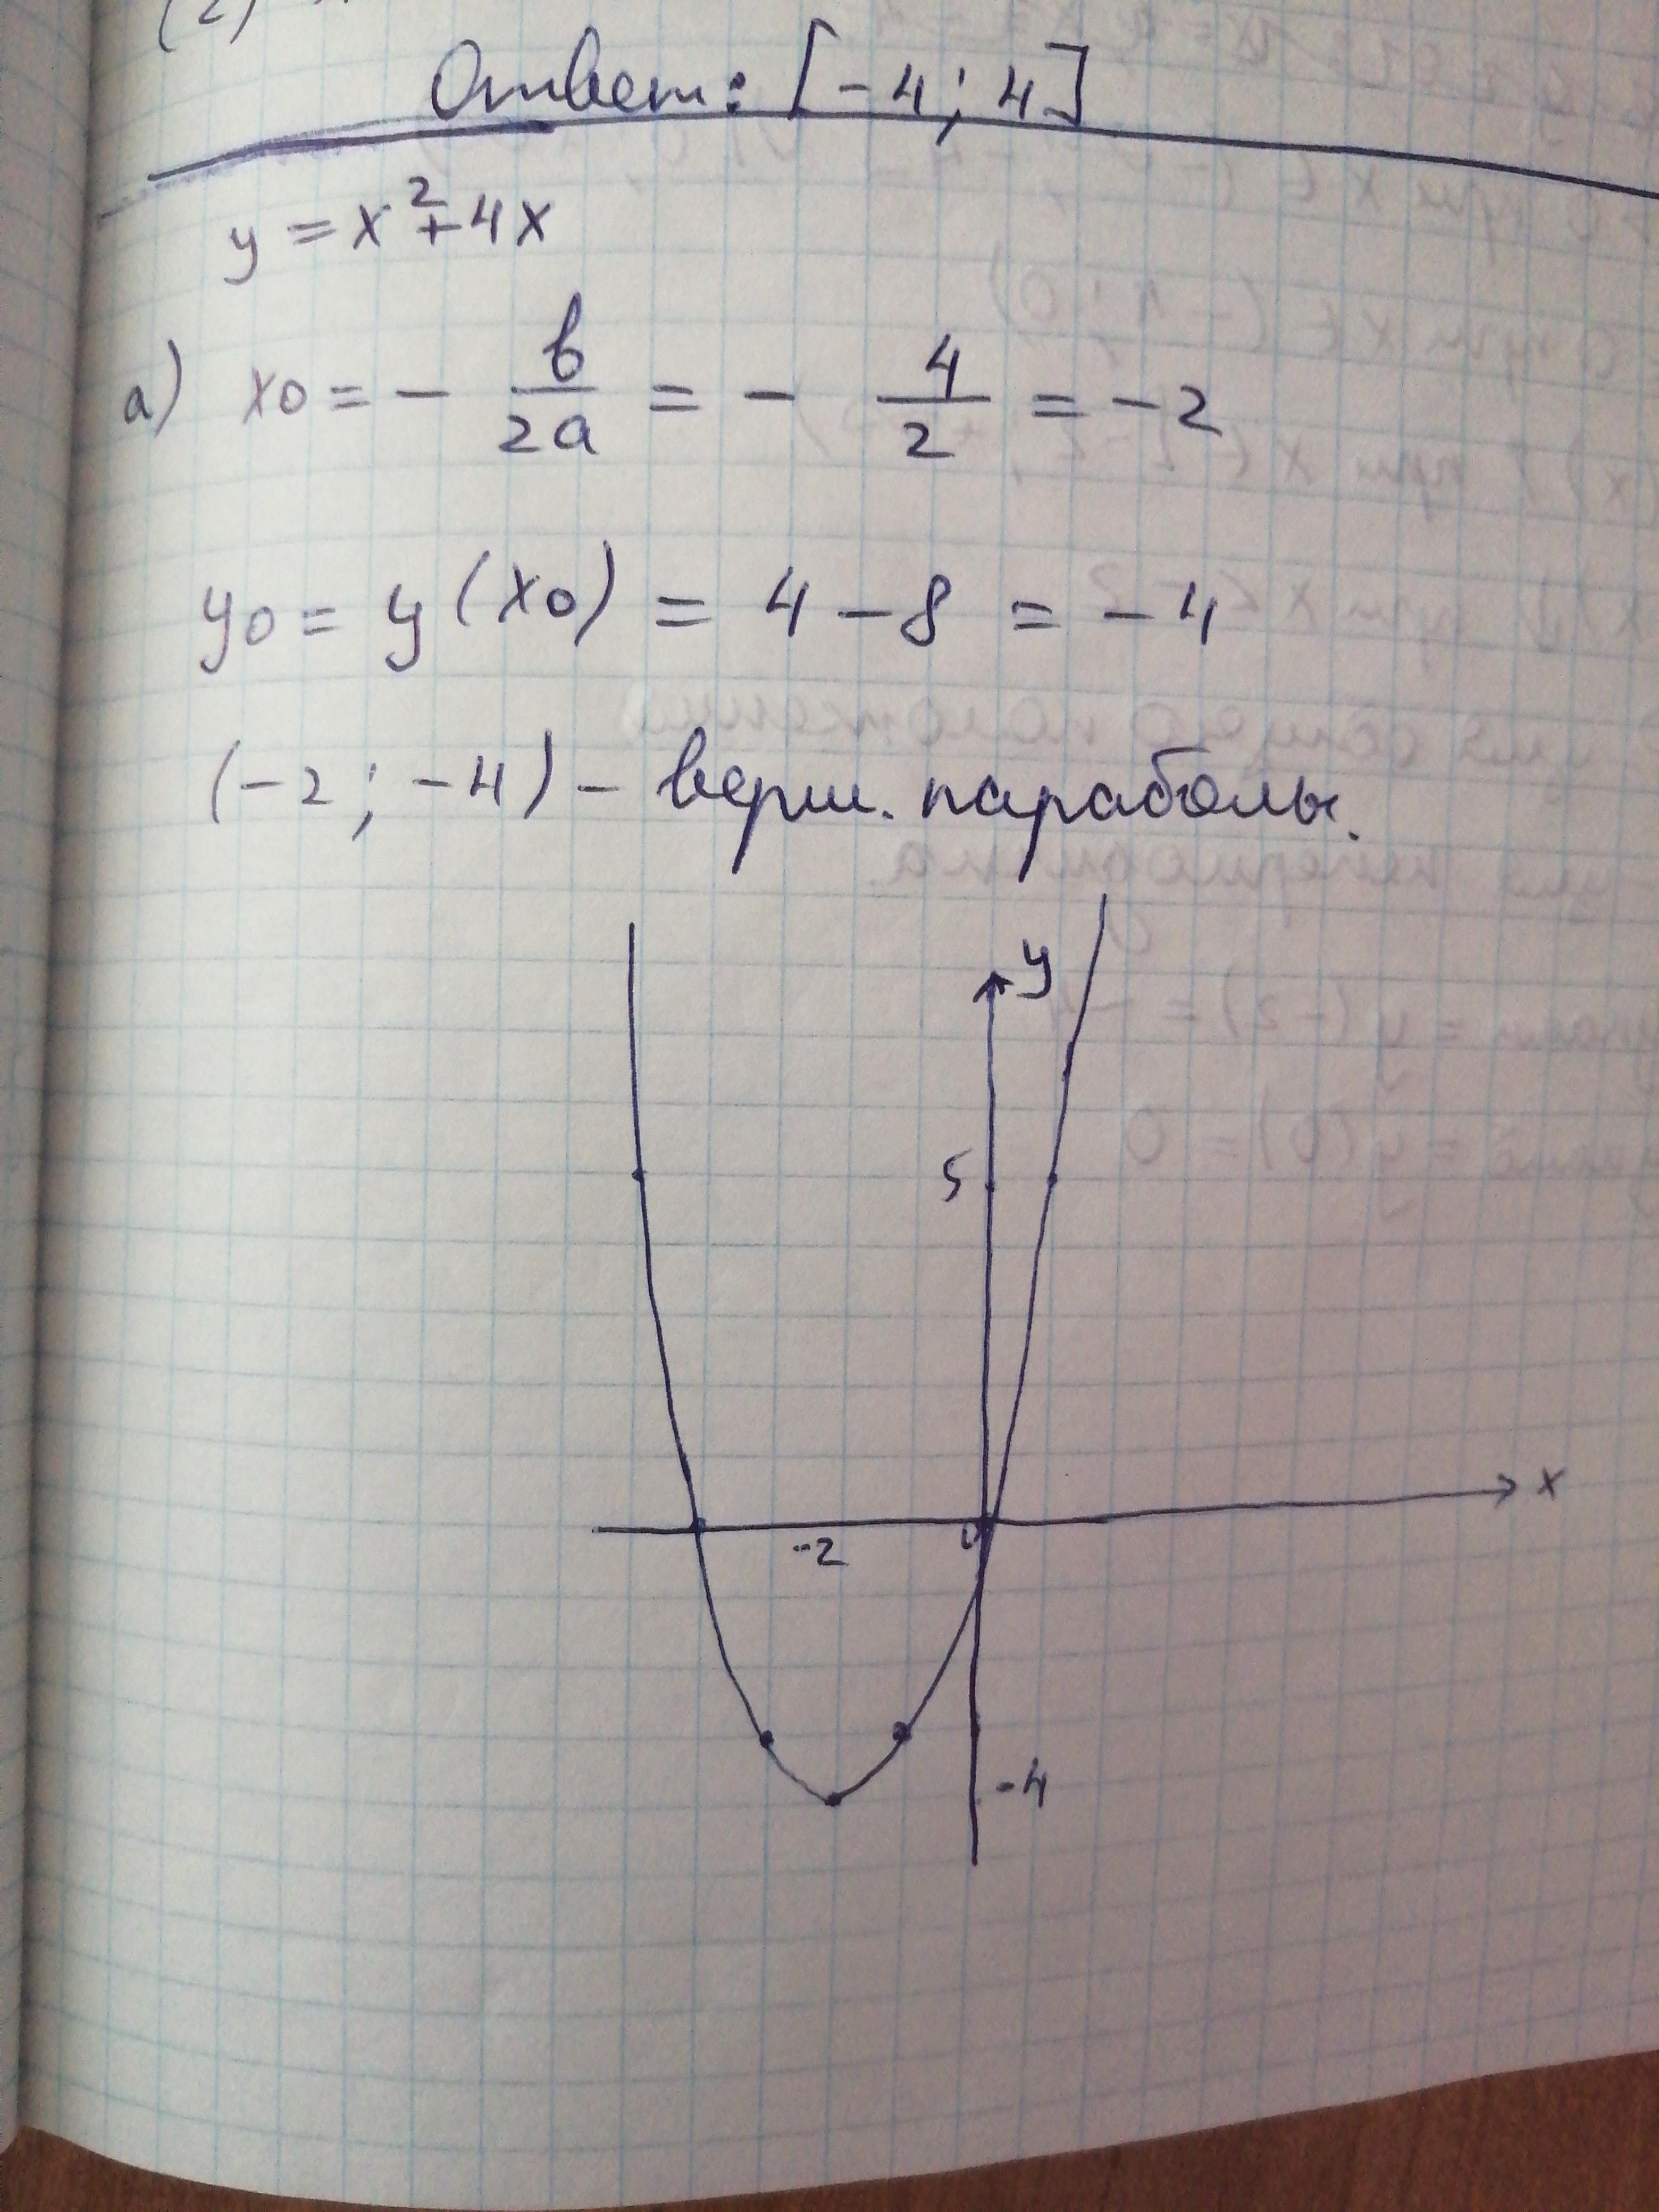 (2)
Ответ: [-4; 4]
y = x² + 4x
а) x0 = - b/2a = - 4/2 = -2
y0 = y(x0) = 4 - 8 = -4
(-2; -4) - верш. параболы.
y
5
x
-2
0
-4